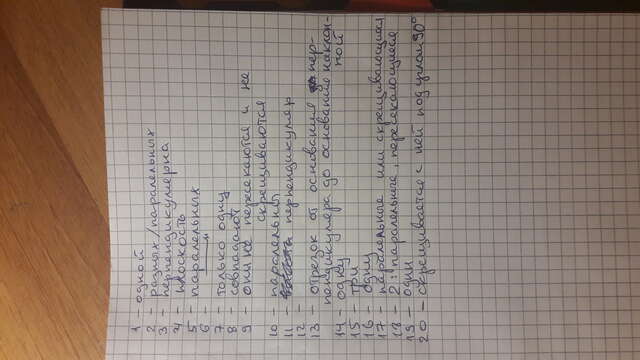 1 – одной
2 – разных/паралельных
3 – перпендикулярна
4 – плоскость
5 – паралельных
6 – —"—
7 – только одну
8 – совпадают
9 – они не пересекаются и не
скрещиваются
10 – паралельны
11 – перпендикуляр
12 –
13 – отрезок от основания пер-
пендикуляра до основание наклон-
ной
14 – одну
15 – три
16 – одну
17 – паралельные или скрещивающиеся
18 – 2: паралельные, пересекающиеся
19 – один
20 – скрещивается с ней под углом 90°